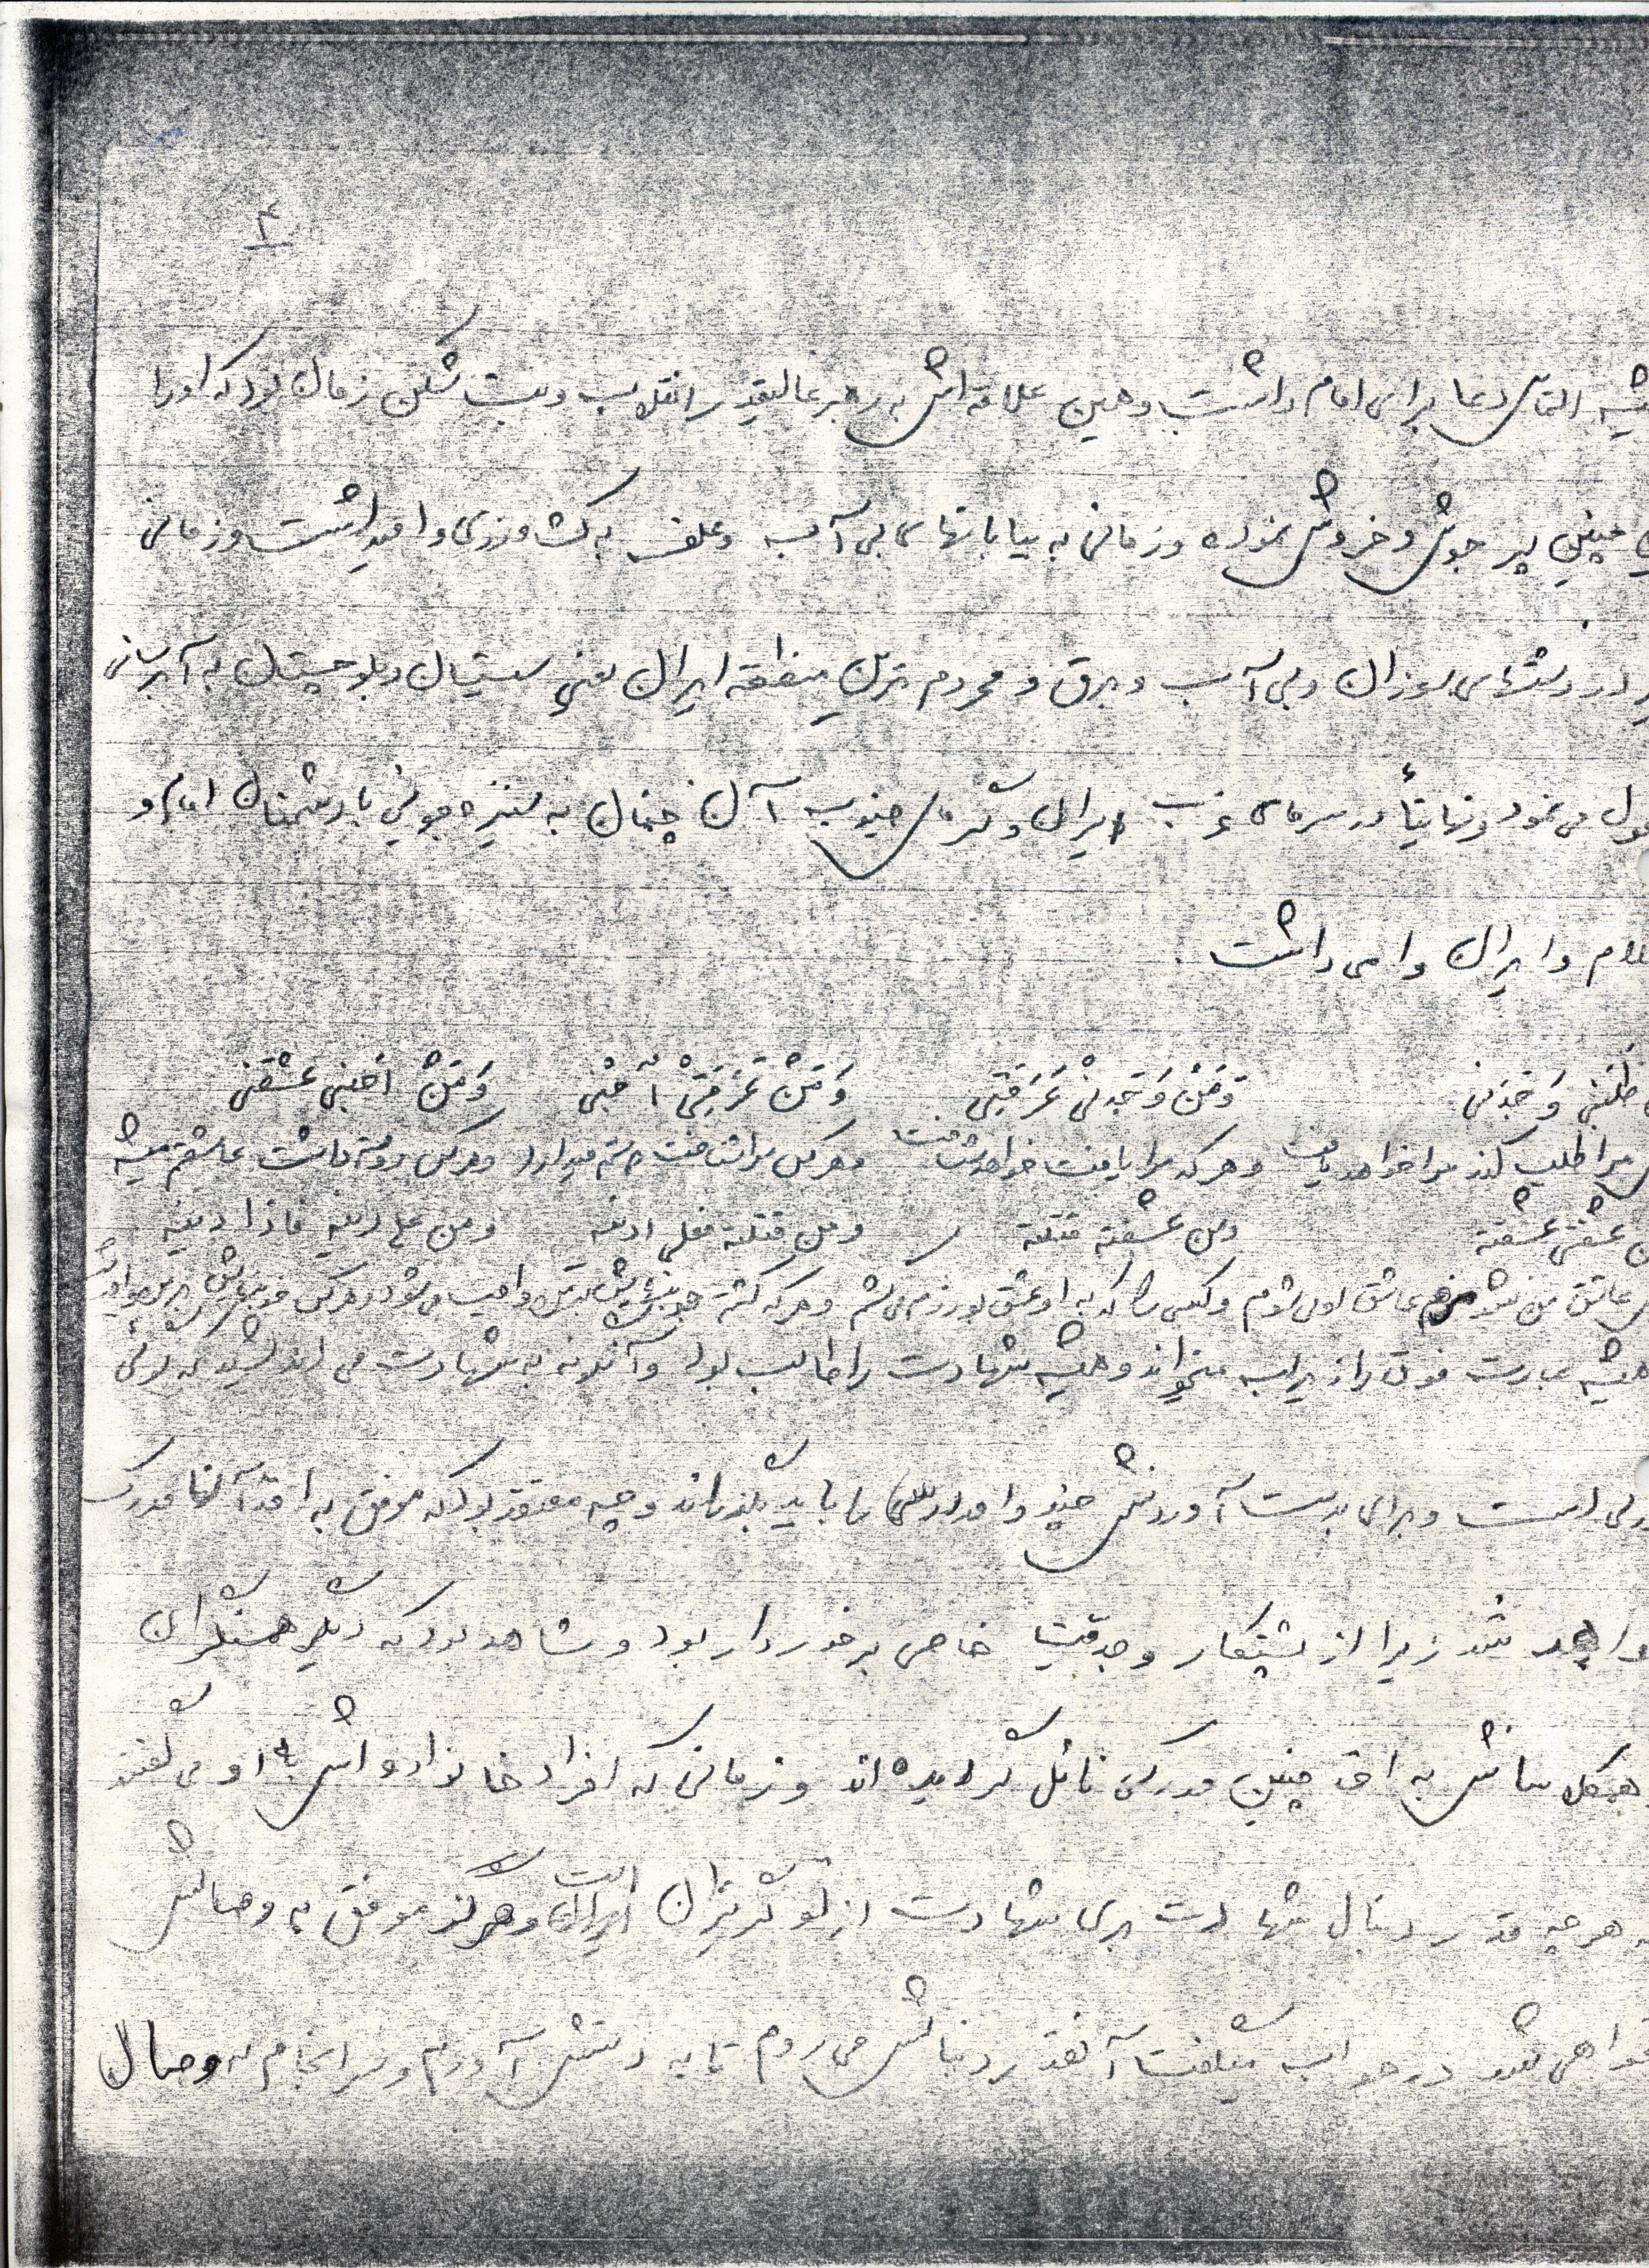 ۴
التماس دعا برای امام داشت و همین علاقه‌اش به رهبر عالیقدر انقلاب و بت شکن زمان بود که او را
چنین پر جوش و خروش نموده و زمانی به بیابانهای بی آب و علف به کشاورزی وا میداشت و زمانی
در دشتهای سوزان و بی آب و برق و محروم ترین منطقه ایران یعنی سیستان و بلوچستان به آبرسانی
می نمود و نهایتاً در سرمای غرب ایران و گرمای جنوب آن چنان به ستیزه جوئی با دشمنان امام و
و ایران وا می داشت .
طلبنی وَجَدَنی وَمَنْ وَجَدنی عَرَفَنی وَمَنْ عَرَفَنی اَحَبَّنی وَمَنْ احبنی عشقنی
مرا طلب کند مرا خواهد یافت و هر که مرا یافت خواهد شناخت و هر کس مرا شناخت دوستم میدارد و هر کس دوستم داشت عاشقم میشه
عشقنی عشقته ومن عشقته قتلته ومن قتلته فعلی دیته ومن علی دیته فانا دیته
عاشق من شود من هم عاشق او می شوم و کسی را که به او عشق بورزم می کشم و هر که کشته خونبهایش بر من واجب می شود و هر کس خونبهایش بر من واجب
عبارت فوق را از برایم میخواند و همیشه شهادت را طالب بود و آنگونه به شهادت می اندیشید که گوئی
است و برای بدست آوردنش چند واحد درسی را باید بگذراند و چه معتقد بود که موفق به اخذ آن مدرک
شد زیرا از پشتکار و جدیت خاصی برخوردار بود و شاهد بود که دیگر همسنگران
به اخذ چنین مدرکی نائل گردیده اند و زمانی که افراد خانواده اش به او می گفتند
هر چه قدر دنبال شهادت بری شهادت از تو گریزان است و هرگز موفق به وصالش
شد در جواب میگفت آنقدر دنبالش می روم تا به دستش آورم و سرانجام به وصال